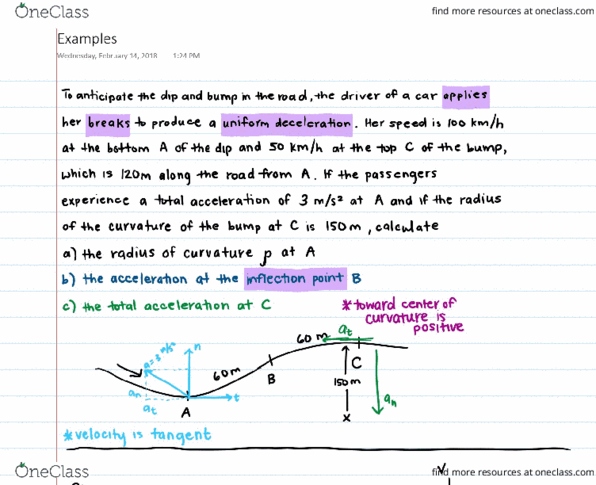 OneClass
find more resources at oneclass.com
Examples
Wednesday, February 14, 2018 1:24 PM
To anticipate the dip and bump in the road, the driver of a car applies
her breaks to produce a uniform deceleration. Her speed is 100 km/h
at the bottom A of the dip and 50 km/h at the top C of the bump,
which is 120m along the road from A. If the passengers
experience a total acceleration of 3 m/s² at A and if the radius
of the curvature of the bump at C is 150m, calculate
a) the radius of curvature ρ at A
b) the acceleration at the inflection point B
c) the total acceleration at C
*toward center of
curvature is
positive
60m
at
a=3 m/s²
n
60m
B
C
150m
an
an
at
t
A
x
*velocity is tangent
OneClass
find more resources at oneclass.com